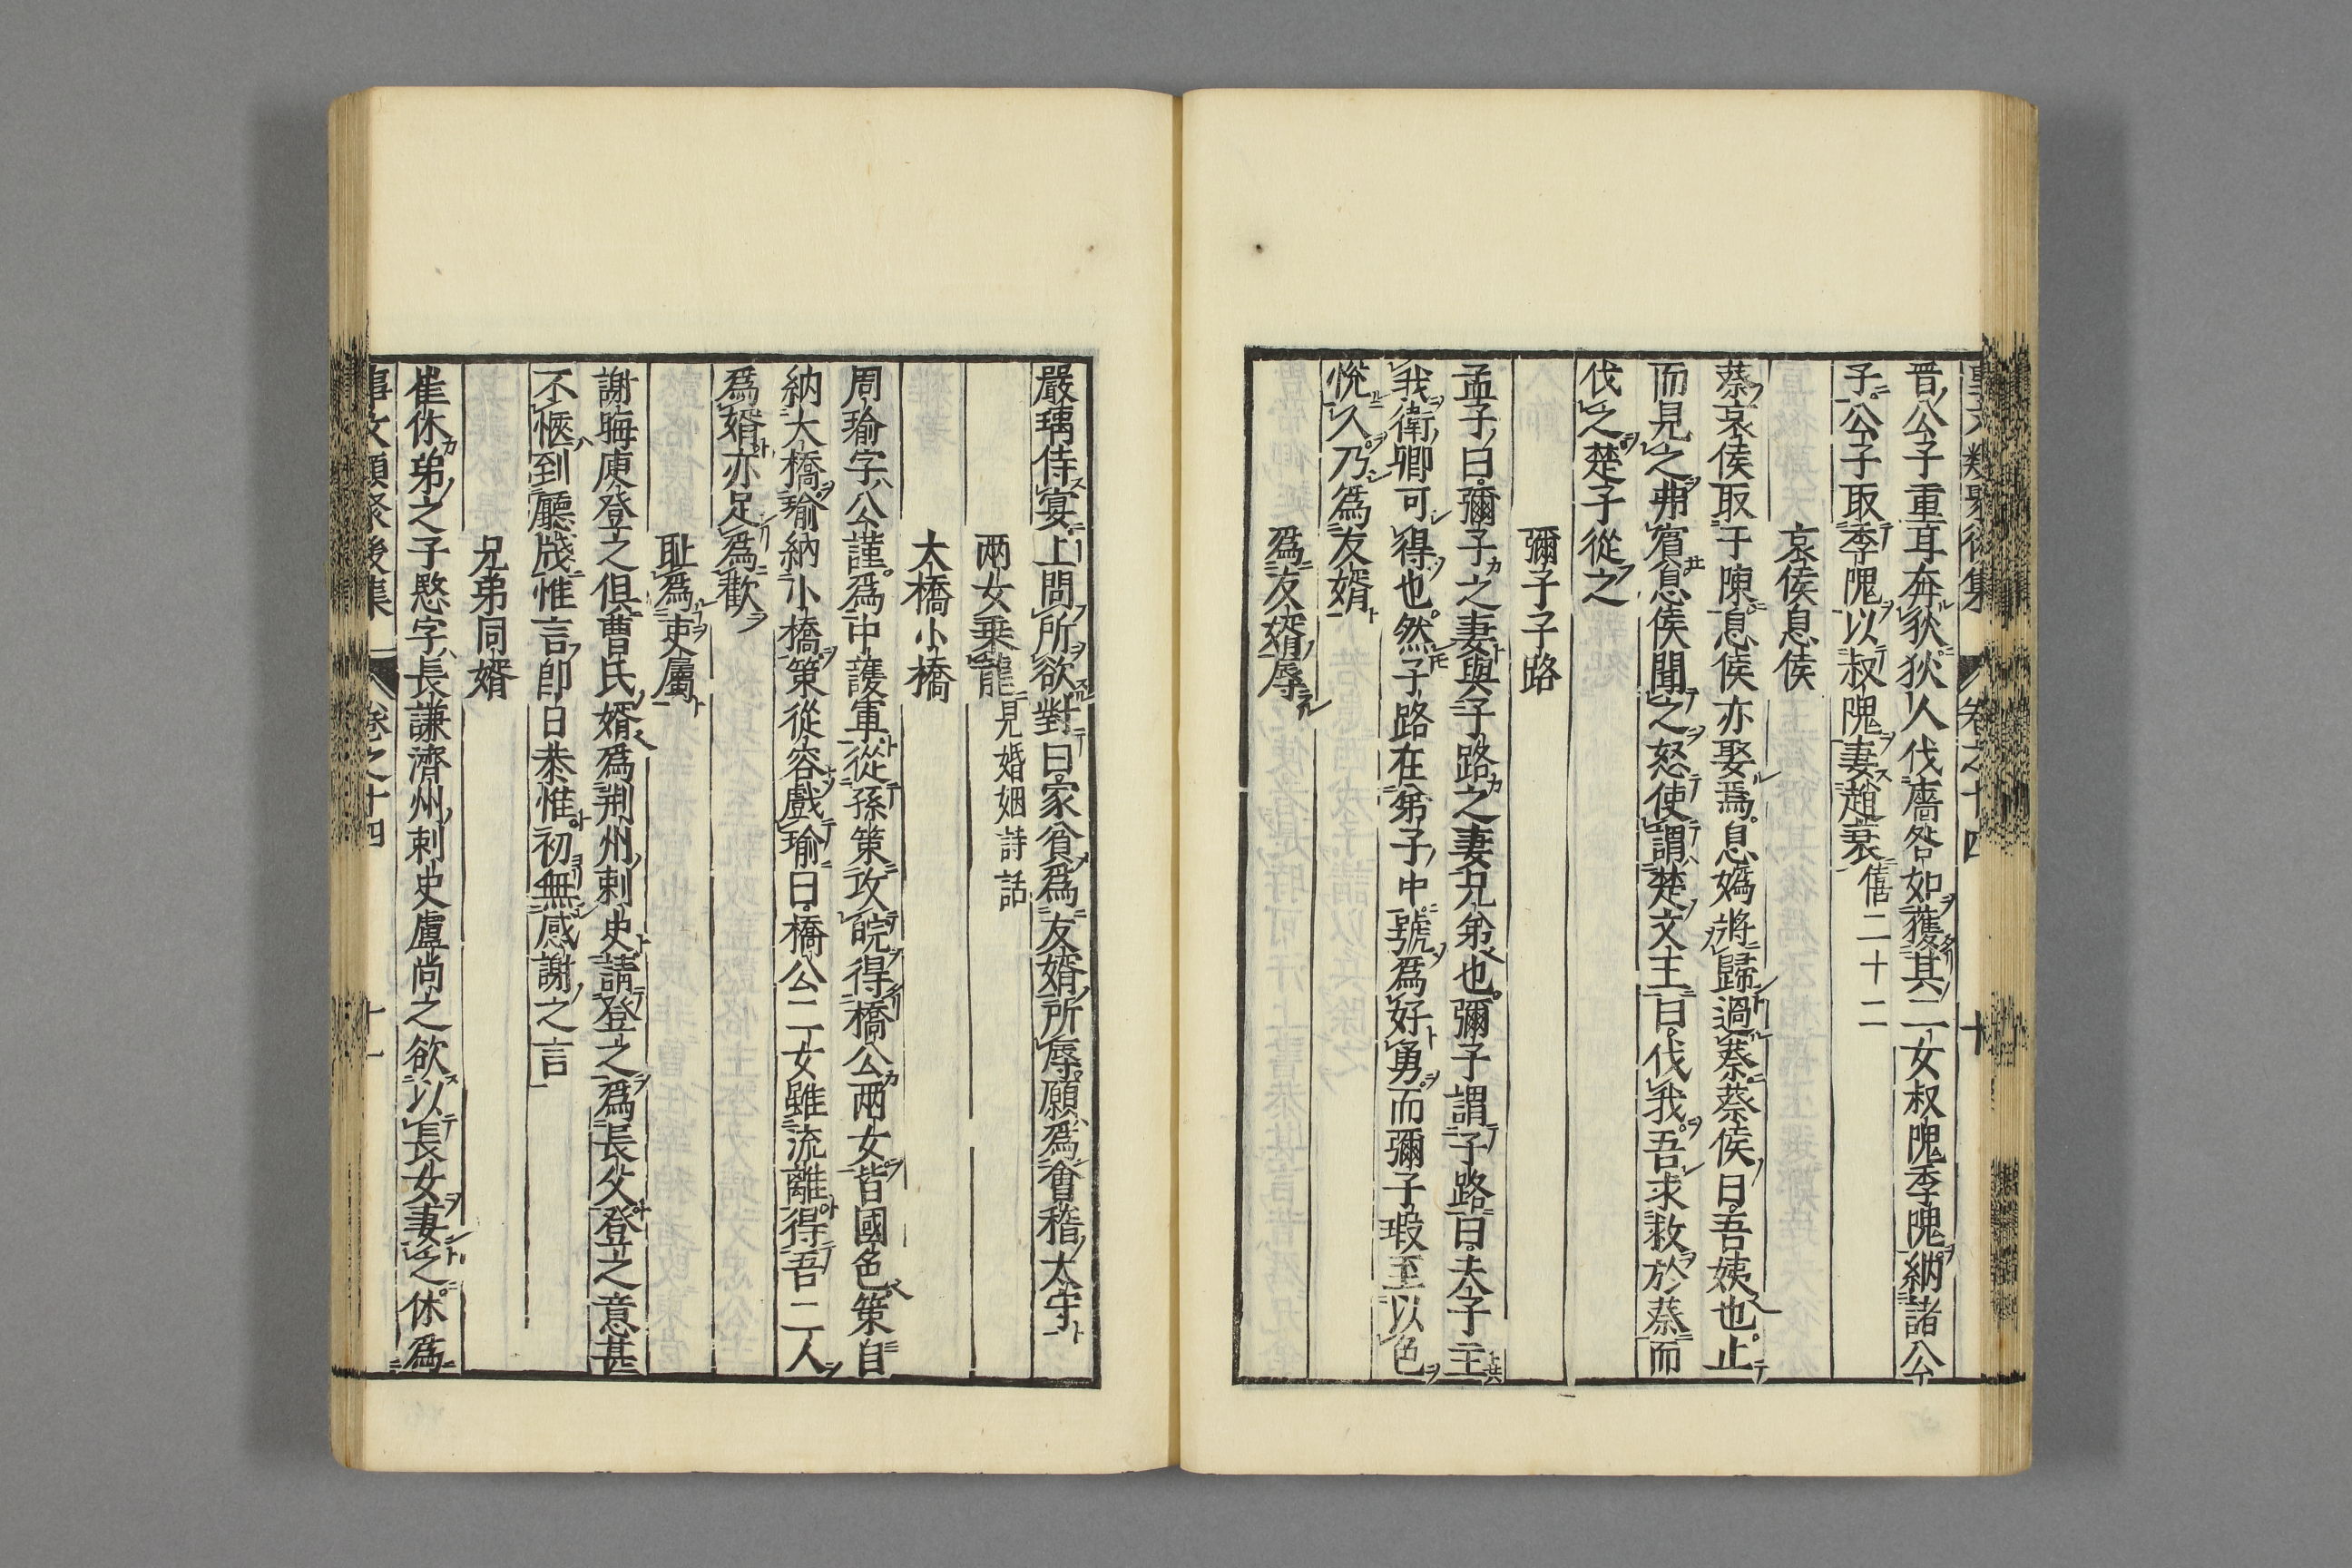 事文類聚後集 卷之十四 十
晋公子重耳奔狄狄人伐廧咎如獲其二女叔隗季隗納諸公
子公子取季隗以叔隗妻趙衰僖二十二
哀侯息侯
蔡哀侯取于陳息侯亦娶焉息媯將歸過蔡蔡侯曰吾姨也止
而見之弗賔息侯聞之怒使謂楚文王曰伐我吾求救於蔡而
伐之楚子從之
彌子子路
孟子曰彌子之妻與子路之妻兄弟也彌子謂子路曰夫子主
我衛卿可得也然子路在弟子中號爲好勇而彌子瑕至以色
悅人乃爲友婿
爲友婿辱
嚴瑀侍宴上問所欲對曰家貧爲友婿所辱願爲會稽太守
兩女乗龍見婚姻詩話
大橋小橋
周瑜字公謹爲中護軍從孫策攻皖得橋公兩女皆國色策自
納大橋瑜納小橋策從容戲瑜曰橋公二女雖流離得吾二人
爲婿亦足爲歡
耻爲吏屬
謝晦庾登之俱曹氏婿爲荆州刺史請登之爲長父登之意甚
不愜到廳牋惟言卽日恭惟初無感謝之言
兄弟同婿
崔休弟之子愍字長謙濟州刺史盧尚之欲以長女妻之休爲
事文類聚後集 卷之十四 十一